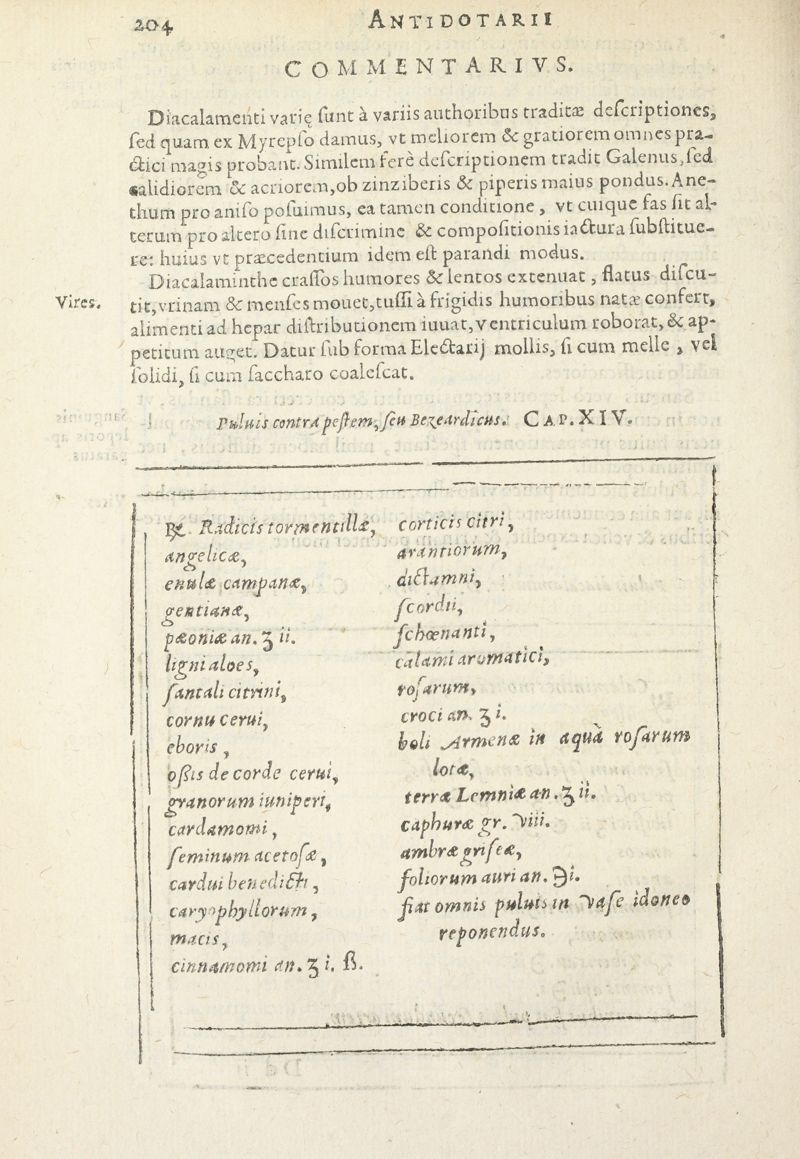 204 ANTIDOTARII
COMMENTARIVS.
Diacalamenti varię sunt à variis authoribus traditæ descriptiones,
sed quam ex Myrepso damus, vt meliorem & gratiorem omnes pra-
ctici magis probant. Similem ferè descriptionem tradit Galenus, sed
calidiorem & acriorem, ob zinziberis & piperis maius pondus. Ane-
thum pro aniso posuimus, ea tamen conditione, vt cuique fas sit al-
terum pro altero sine discrimine & compositionis iactura substitue-
re: huius vt præcedentium idem est parandi modus.
Diacalaminthe crassos humores & lentos extenuat, flatus discu-
Vires. tit, vrinam & menses mouet, tussi à frigidis humoribus natæ confert,
alimenti ad hepar distributionem iuuat, ventriculum roborat, & ap-
petitum auget. Datur sub forma Electarij mollis, si cum melle, vel
solidi, si cum saccharo coalescat.
Puluis contra pestem, seu Bezeardicus. CAP. XIV.
℞. Radicis tormentillæ,
angelicæ,
enulæ campanæ,
gentianæ,
pæoniæ an. ʒ ii.
ligni aloes,
santali citrini,
cornu cerui,
eboris,
ossis de corde cerui,
granorum iuniperi,
cardamomi,
seminum acetosæ,
cardui benedicti,
caryophyllorum,
macis,
cinnamomi an. ʒ i. ß.
corticis citri,
arantiorum,
dictamni,
scordii,
schœnanti,
calami aromatici,
rosarum,
croci an. ʒ i.
boli Armenæ in aqua rosarum
lotæ,
terræ Lemniæ an. ʒ ii.
caphuræ gr. viii.
ambræ griseæ,
foliorum auri an. ℈i.
fiat omnis puluis in vase idoneo
reponendus.